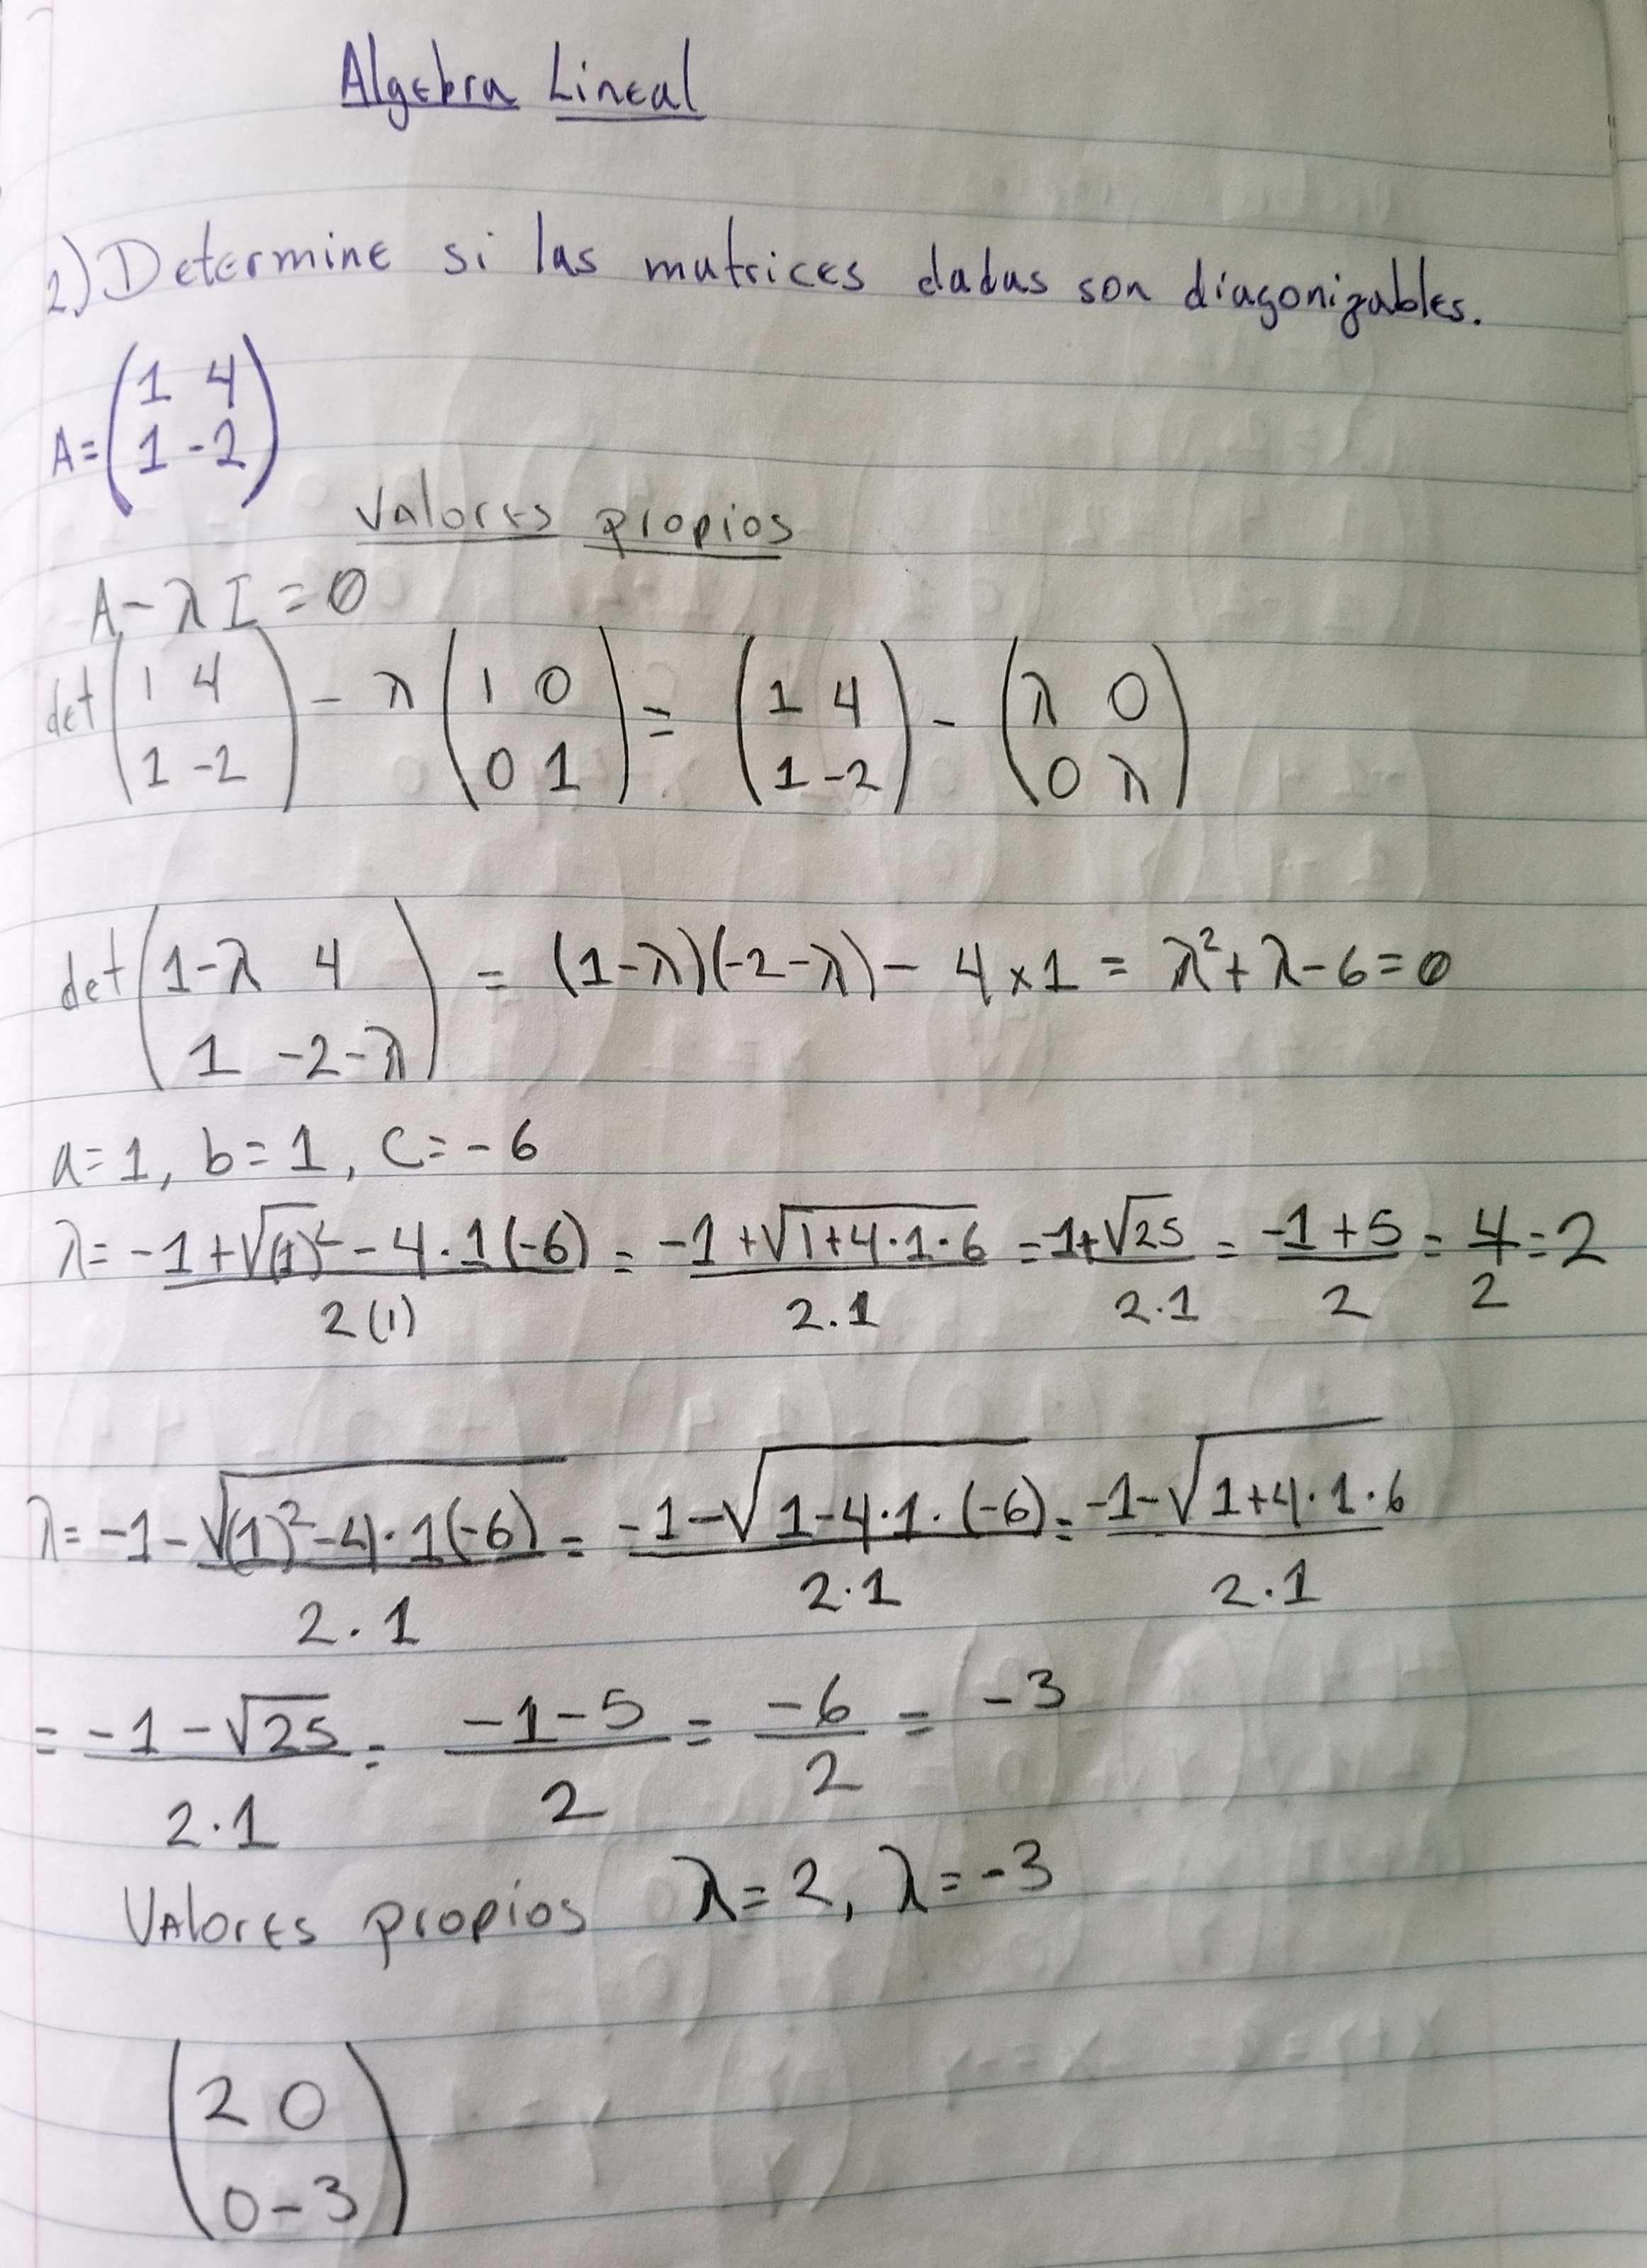 Algebra Lineal
2.) Determine si las matrices dadas son diagonizables.
A = (1 4
1 -2)
Valores propios
A - λI = 0
det (1 4
1 -2) - λ (1 0
0 1) = (1 4
1 -2) - (λ 0
0 λ)
det (1-λ 4
1 -2-λ) = (1-λ)(-2-λ) - 4x1 = λ² + λ - 6 = 0
a = 1, b = 1, c = -6
λ = -1 + √(1)² - 4·1(-6) / 2(1) = -1 + √1+4·1·6 / 2.1 = -1+√25 / 2.1 = -1+5 / 2 = 4/2 = 2
λ = -1 - √(1)² - 4·1(-6) / 2·1 = -1 - √1-4·1·(-6) / 2·1 = -1 - √1+4·1·6 / 2·1
= -1 - √25 / 2·1 = -1-5 / 2 = -6 / 2 = -3
Valores propios λ = 2, λ = -3
(2 0
0 -3)